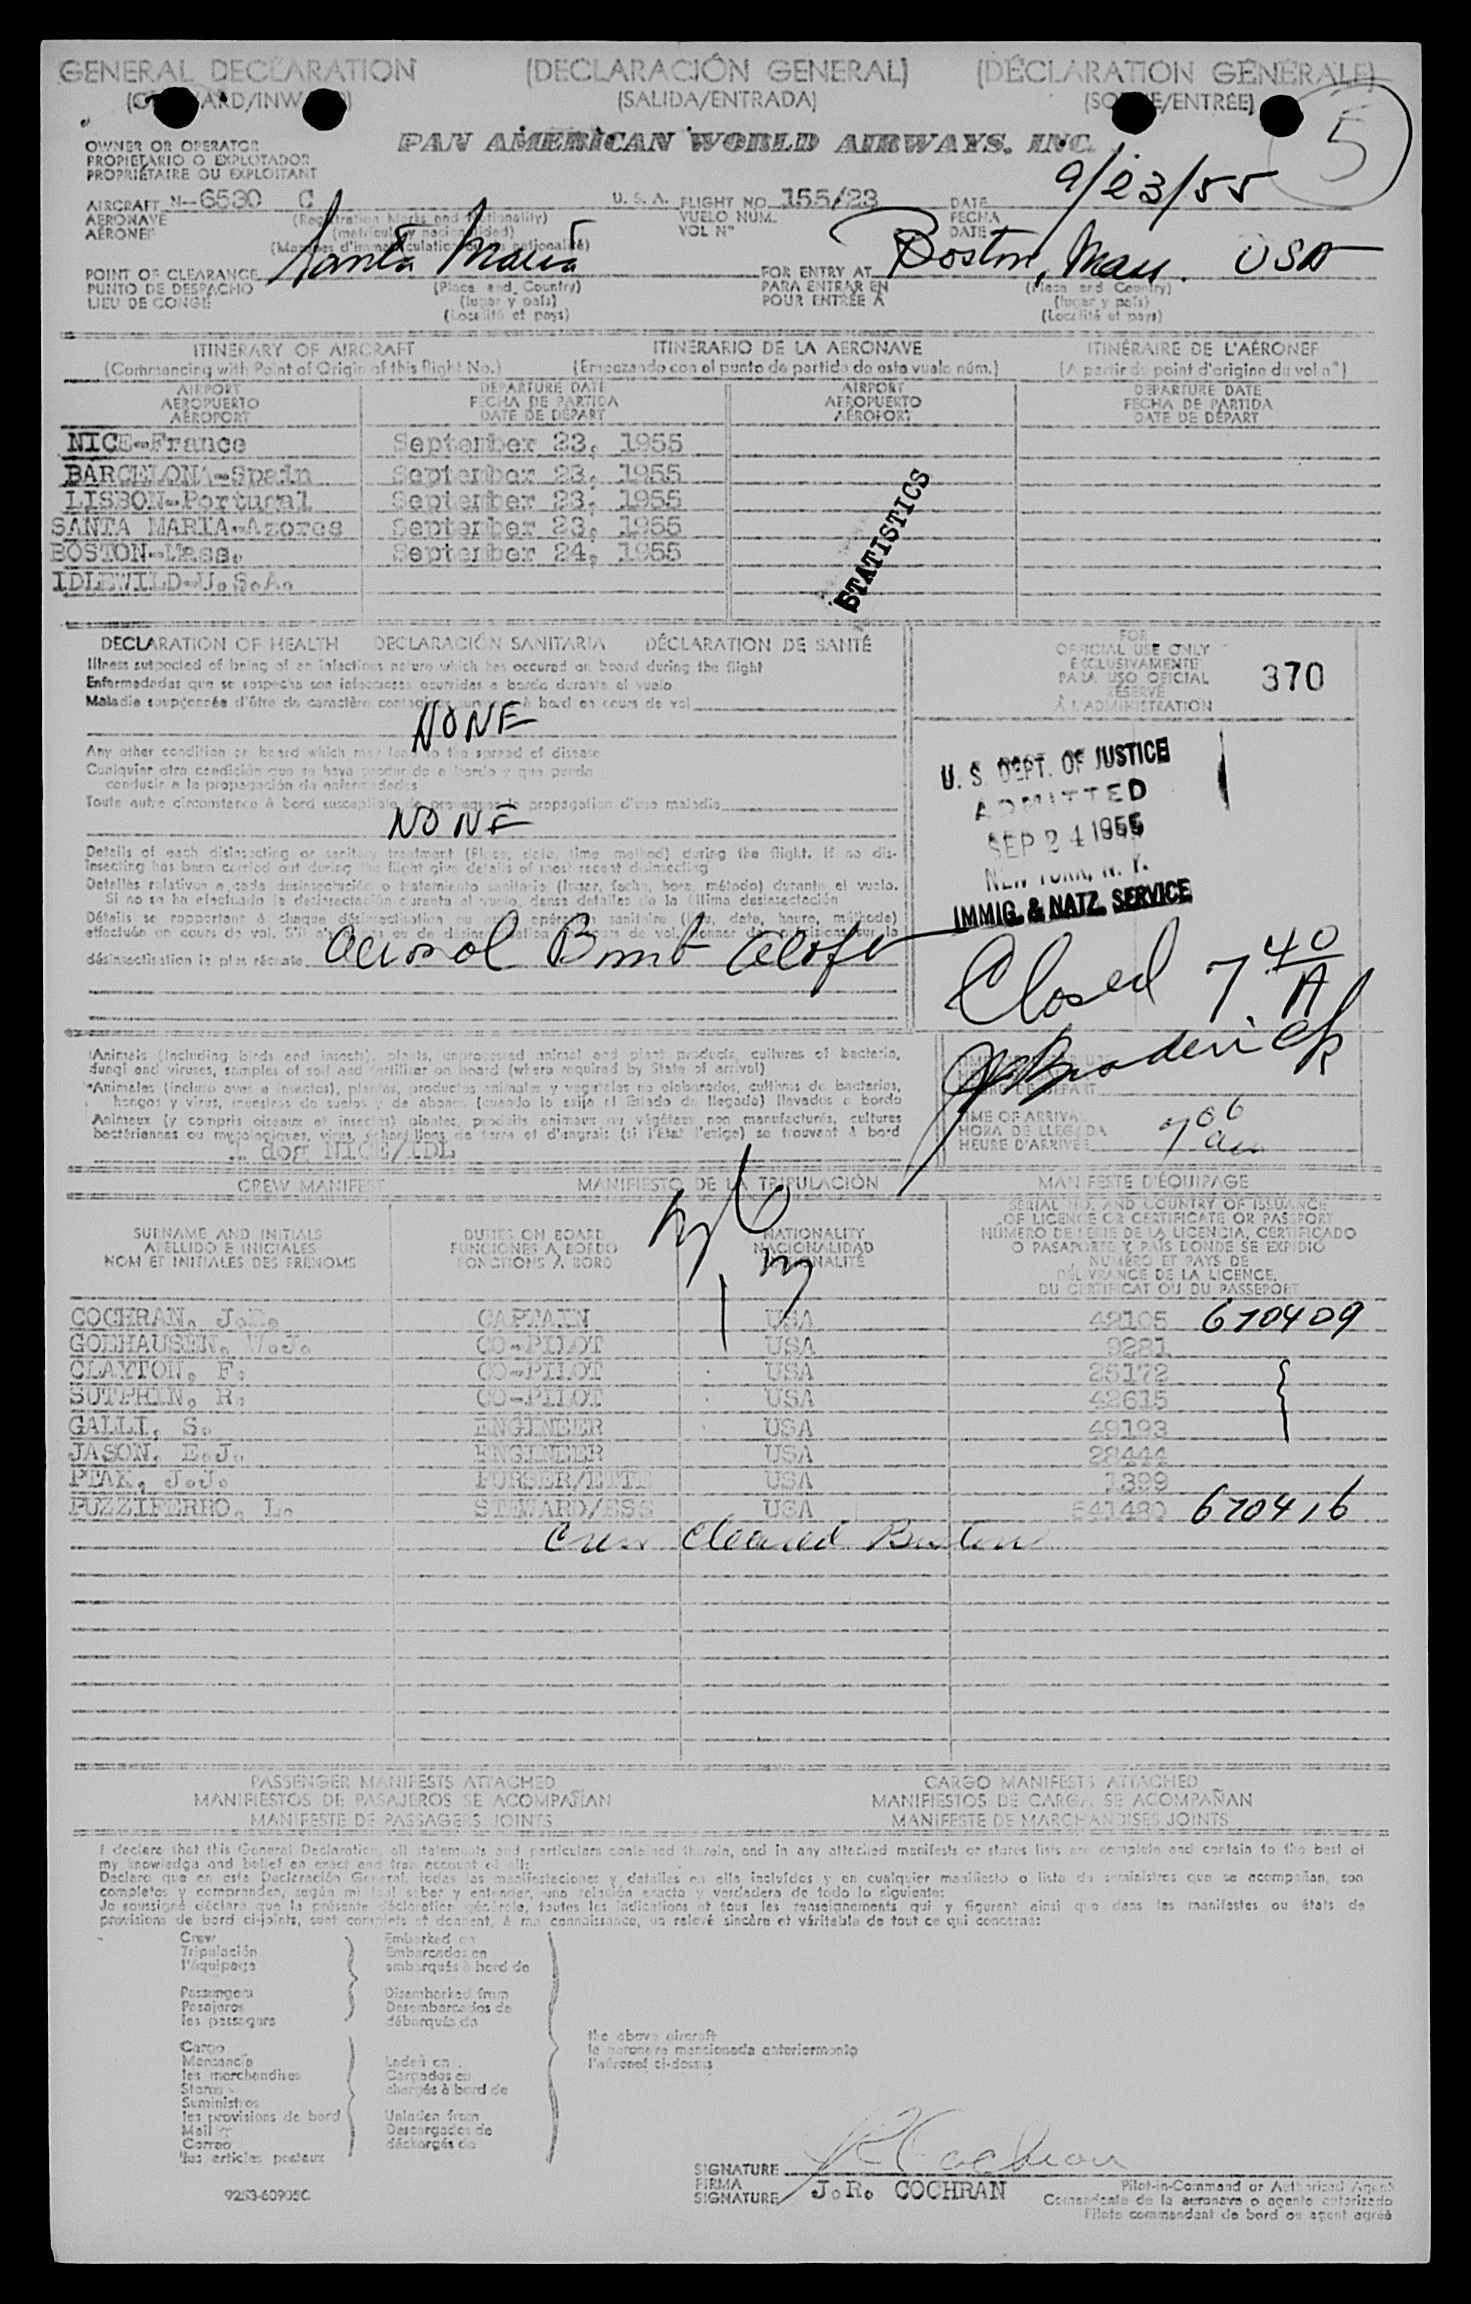 GENERAL DECLARATION (DECLARACIÓN GENERAL) (DÉCLARATION GÉNÉRALE)
(SALIDA/ENTRADA)
5
OWNER OR OPERATOR
PROPIETARIO O EXPLOTADOR
PROPRIÉTAIRE OU EXPLOITANT
PAN AMERICAN WORLD AIRWAYS, INC.
AIRCRAFT N-6530 C U. S. A. FLIGHT NO. 155/23 DATE 9/23/55
AERONAVE (Registration Marks and Nationality) VUELO NUM. FECHA
AÉRONEF (matricula y nacionalidad) VOL N° DATE
POINT OF CLEARANCE Santa Maria FOR ENTRY AT Boston, Mass. USA
PUNTO DE DESPACHO (Place and Country) PARA ENTRAR EN (Place and Country)
LIEU DE CONGÉ (lugar y país) POUR ENTRÉE A (lugar y país)
(Localité et pays) (Localité et pays)
ITINERARY OF AIRCRAFT ITINERARIO DE LA AERONAVE ITINÉRAIRE DE L'AÉRONEF
(Commencing with Point of Origin of this flight No.) (Empezando con el punto de partida de este vuelo núm.) (A partir du point d'origine du vol n°)
AIRPORT DEPARTURE DATE AIRPORT DEPARTURE DATE
AEROPUERTO FECHA DE PARTIDA AEROPUERTO FECHA DE PARTIDA
AÉROPORT DATE DE DÉPART AÉROPORT DATE DE DÉPART
NICE-France September 23, 1955
BARCELONA-Spain September 23, 1955
LISBON-Portugal September 23, 1955
SANTA MARIA-Azores September 23, 1955
BOSTON-Mass. September 24, 1955
IDLEWILD-U.S.A.
STATISTICS
DECLARATION OF HEALTH DECLARACIÓN SANITARIA DÉCLARATION DE SANTÉ
Illness suspected of being of an infectious nature which has occured on board during the flight
Enfermedades que se sospecha son infecciosas ocurridas a bordo durante el vuelo
Maladie soupçonnée d'être de caractère contagieux survenue à bord en cours de vol
NONE
Any other condition on board which may lead to the spread of disease
Cualquier otra condición que se haya producido a bordo y que pueda
conducir a la propagación de enfermedades
Toute autre circonstance à bord susceptible de provoquer la propagation d'une maladie
NONE
Details of each disinsecting or sanitary treatment (Place, date, time, method) during the flight. If no dis-
insecting has been carried out during the flight give details of most recent disinsecting
Detalles relativos a cada desinsectación o tratamiento sanitario (lugar, fecha, hora, método) durante el vuelo.
Si no se ha efectuado la desinsectación durante el vuelo, dense detalles de la última desinsectación
désinsectisation la plus récente Aerosol Bomb Aloft
FOR
OFFICIAL USE ONLY
EXCLUSIVAMENTE
PARA USO OFICIAL
RÉSERVÉ
À L'ADMINISTRATION
370
U. S. DEPT. OF JUSTICE
ADMITTED
SEP 24 1955
NEW YORK, N. Y.
IMMIG. & NATZ. SERVICE
Closed 7 40 A
Broderick
Animals (including birds and insects), plants, unprocessed animal and plant products, cultures of bacteria,
fungi and viruses, samples of soil and fertilizer on board (where required by State of arrival)
Animales (incluso aves e insectos), plantas, productos animales y vegetales no elaborados, cultivos de bacterias,
hongos y virus, muestras de suelos y de abonos (cuando lo exija el Estado de llegada) llevados a bordo
Animaux (y compris oiseaux et insectes) plantes, produits animaux ou végétaux non manufacturés, cultures
bactériennes ou mycologiques, virus, échantillons de terre et d'engrais (si l'État l'exige) se trouvant à bord
1 dog NICE/IDL
TIME OF ARRIVAL
HORA DE LLEGADA 7 06 am
HEURE D'ARRIVÉE
CREW MANIFEST MANIFIESTO DE LA TRIPULACIÓN MANIFESTE D'ÉQUIPAGE
SURNAME AND INITIALS DUTIES ON BOARD NATIONALITY SERIAL NO. AND COUNTRY OF ISSUANCE
APELLIDO E INICIALES FUNCIONES A BORDO NACIONALIDAD OF LICENCE OR CERTIFICATE OR PASSPORT
NOM ET INITIALES DES PRÉNOMS FONCTIONS À BORD NATIONALITÉ NÚMERO DE SERIE DE LA LICENCIA, CERTIFICADO
O PASAPORTE Y PAÍS DONDE SE EXPIDIÓ
NUMÉRO ET PAYS DE
DÉLIVRANCE DE LA LICENCE,
DU CERTIFICAT OU DU PASSEPORT
COCHRAN, J.R. CAPTAIN USA 42105 670409
GOLHAUSEN, W.J. CO-PILOT USA 9281
CLAYTON, F. CO-PILOT USA 25172
SUTPHIN, R. CO-PILOT USA 42615
GALLI, S. ENGINEER USA 49193
JASON, E.J. ENGINEER USA 28444
PEAK, J.J. PURSER/ETTE USA 1399
PUZZIFERRO, L. STEWARD/ESS USA 541480 670416
Crew Cleared Boston
PASSENGER MANIFESTS ATTACHED CARGO MANIFESTS ATTACHED
MANIFIESTOS DE PASAJEROS SE ACOMPAÑAN MANIFIESTOS DE CARGA SE ACOMPAÑAN
MANIFESTE DE PASSAGERS JOINTS MANIFESTE DE MARCHANDISES JOINTS
I declare that this General Declaration, all statements and particulars contained therein, and in any attached manifests or stores lists are complete and contain to the best of
my knowledge and belief an exact and true account of all:
Declaro que en esta Declaración General, todas las manifestaciones y detalles en ella incluídos y en cualquier manifiesto o lista de suministros que se acompañan, son
completos y comprenden, según mi leal saber y entender, una relación exacta y verdadera de todo lo siguiente:
Je soussigné déclare que la présente déclaration générale, toutes les indications et tous les renseignements qui y figurent ainsi que dans les manifestes ou états de
provisions de bord ci-joints, sont complets et donnent, à ma connaissance, un relevé sincère et véritable de tout ce qui concerne:
Crew Embarked on
Tripulación Embarcados en
l'équipage embarqués à bord de
Passengers Disembarked from
Pasajeros Desembarcados de
les passagers débarqués de
the above aircraft
la aeronave mencionada anteriormente
l'aéronef ci-dessus
Cargo
Mercancía Laden on
les marchandises Cargados en
Stores chargés à bord de
Suministros
les provisions de bord Unladen from
Mail Descargados de
Correo déchargés de
les articles postaux
SIGNATURE J R Cochran
FIRMA J.R. COCHRAN Pilot-in-Command or Authorized Agent
SIGNATURE Comandante de la aeronave o agente autorizado
Pilote commandant de bord ou agent agréé
9253-60905C